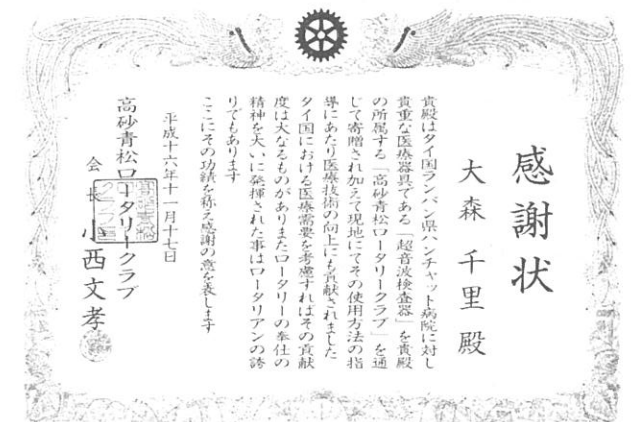 感謝状
大森千里殿
貴殿はタイ国ランパン県ハンチャット病院に対し
貴重な医療器具である「超音波検査器」を貴殿
の所属する「高砂青松ロータリークラブ」を通
じて寄贈され加えて現地にてその使用方法の指
導にあたり医療技術の向上にも貢献されました
タイ国における医療需要を考慮すればその貢献
度は大なるものがありまたロータリーの奉仕の
精神を大いに発揮された事はロータリアンの誇
りでもあります
ここにその功績を称え感謝の意を表します
平成十六年十一月十七日
高砂青松ロータリークラブ
会長 小西文孝